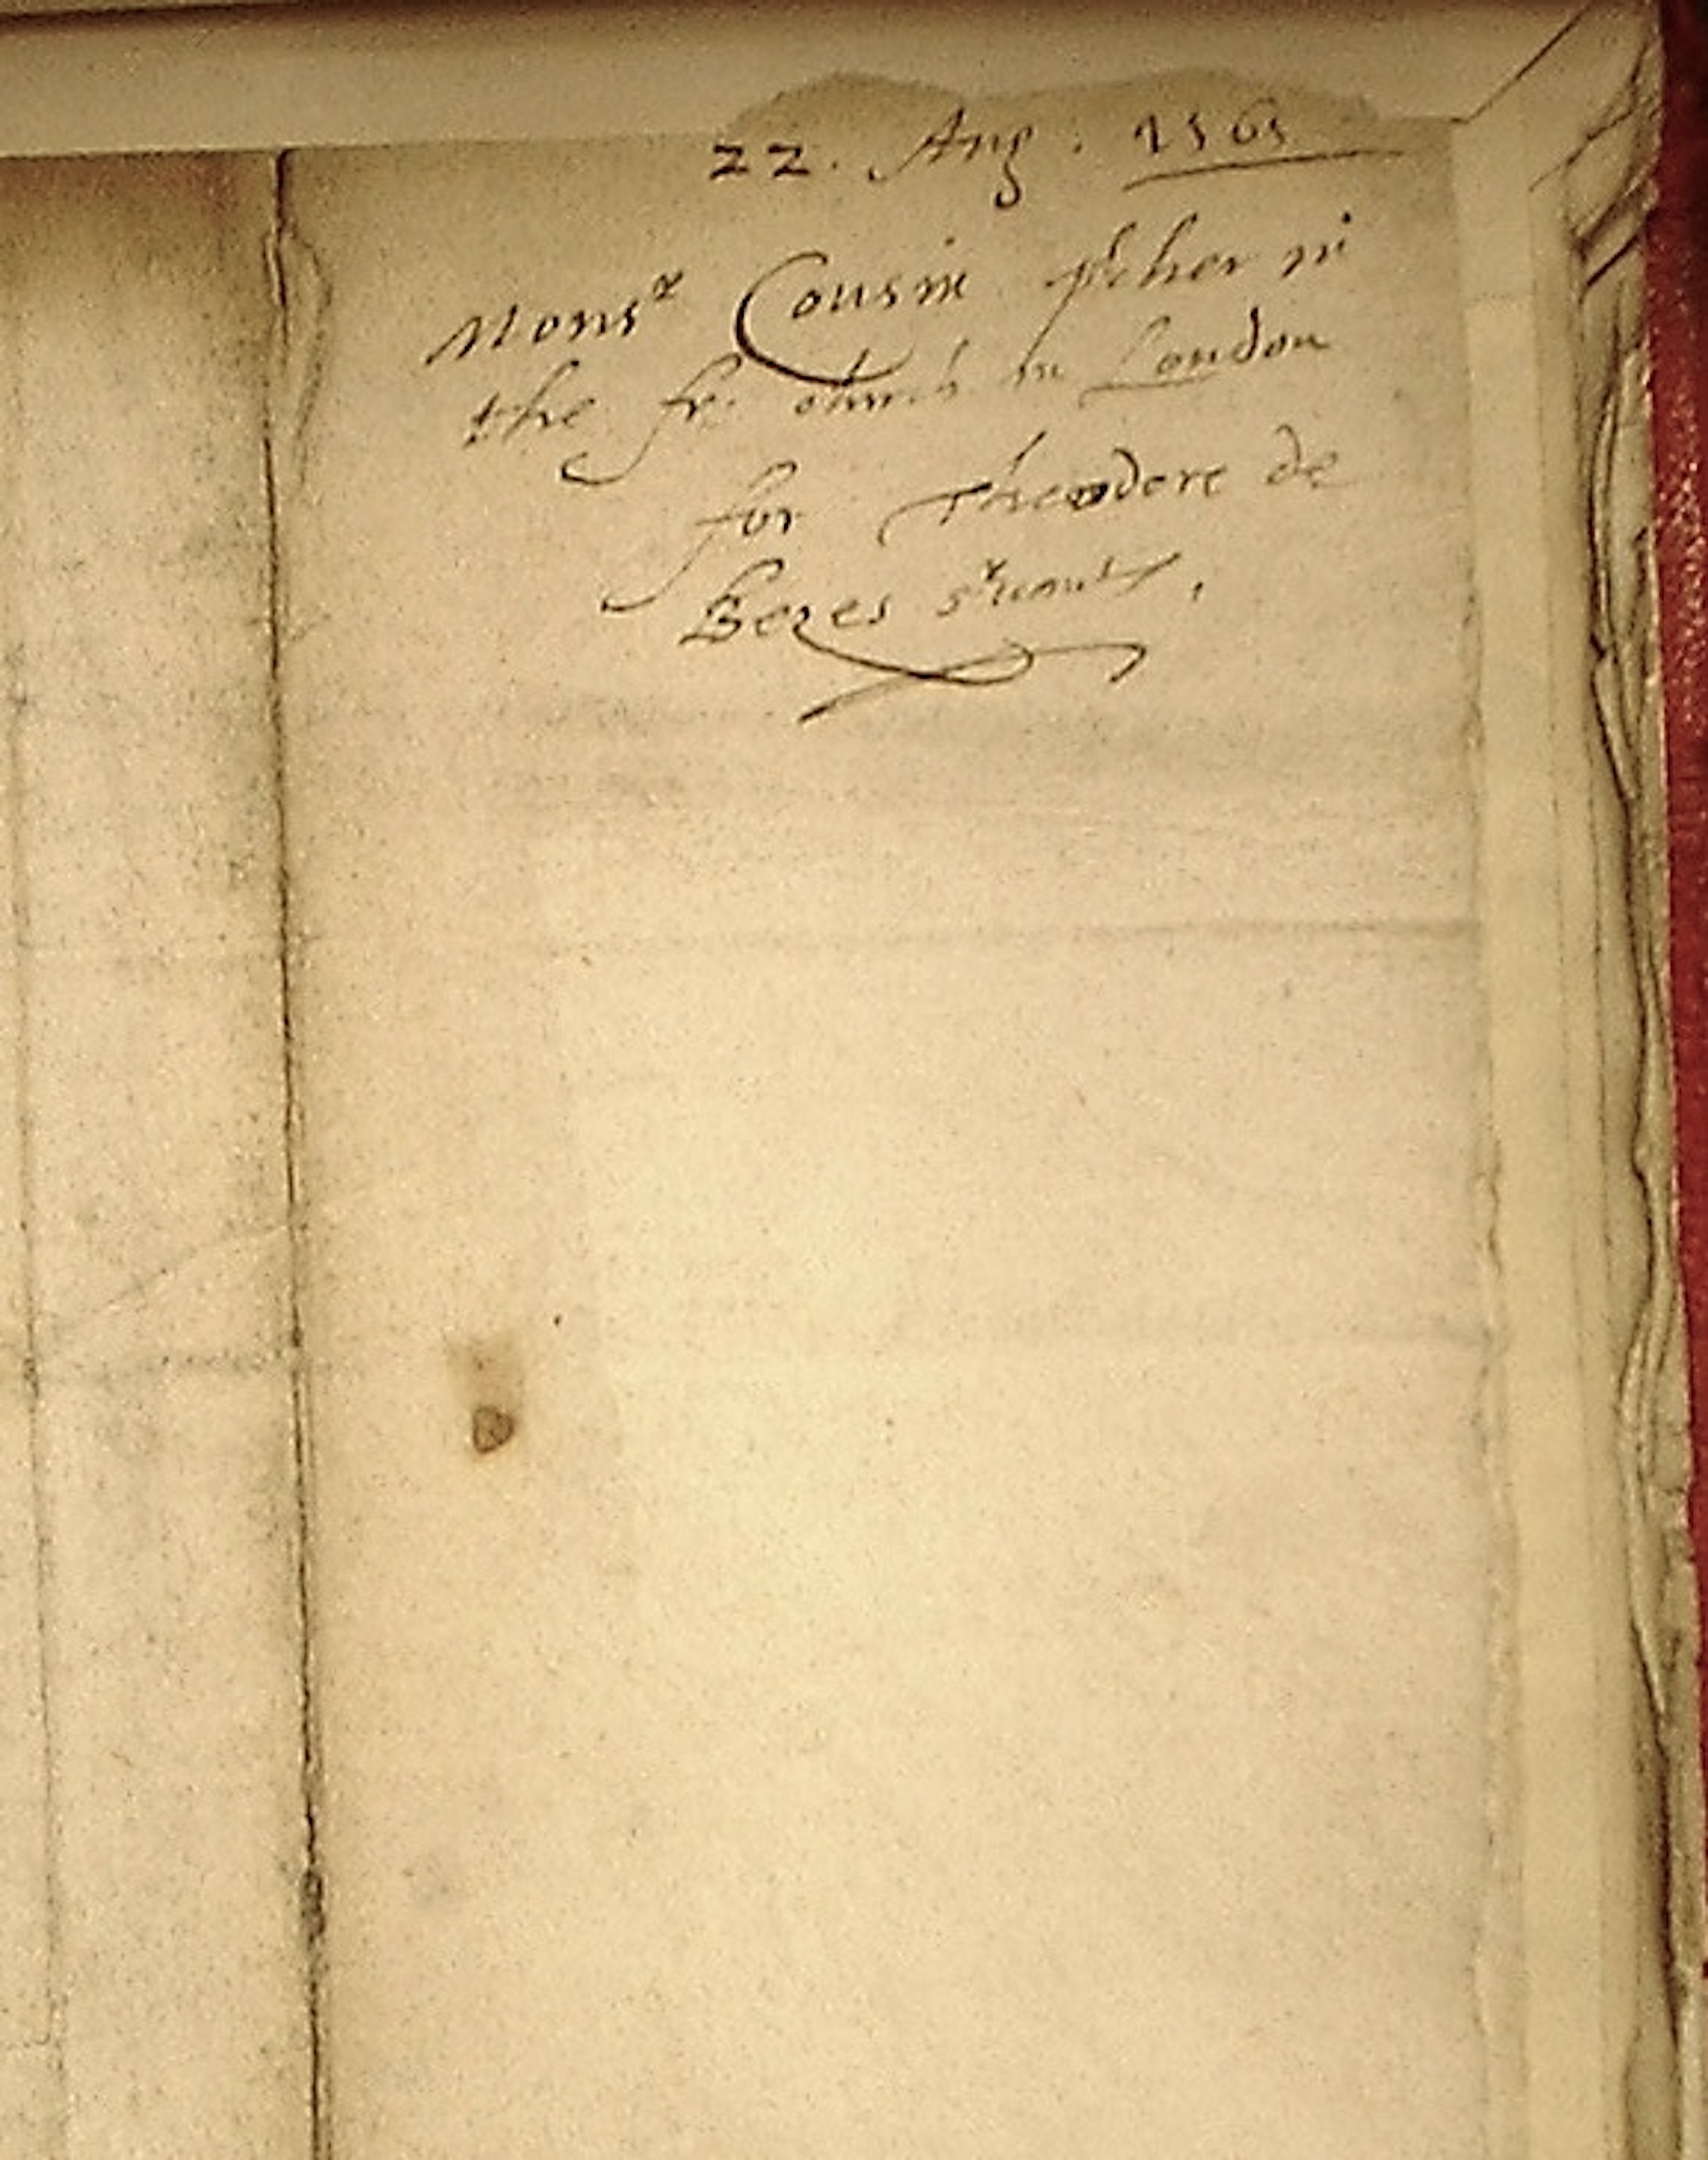 22. Aug. 1565
Monsr Cousin pcher in
the fr. church in London
for Theodore de
Bezes servants,